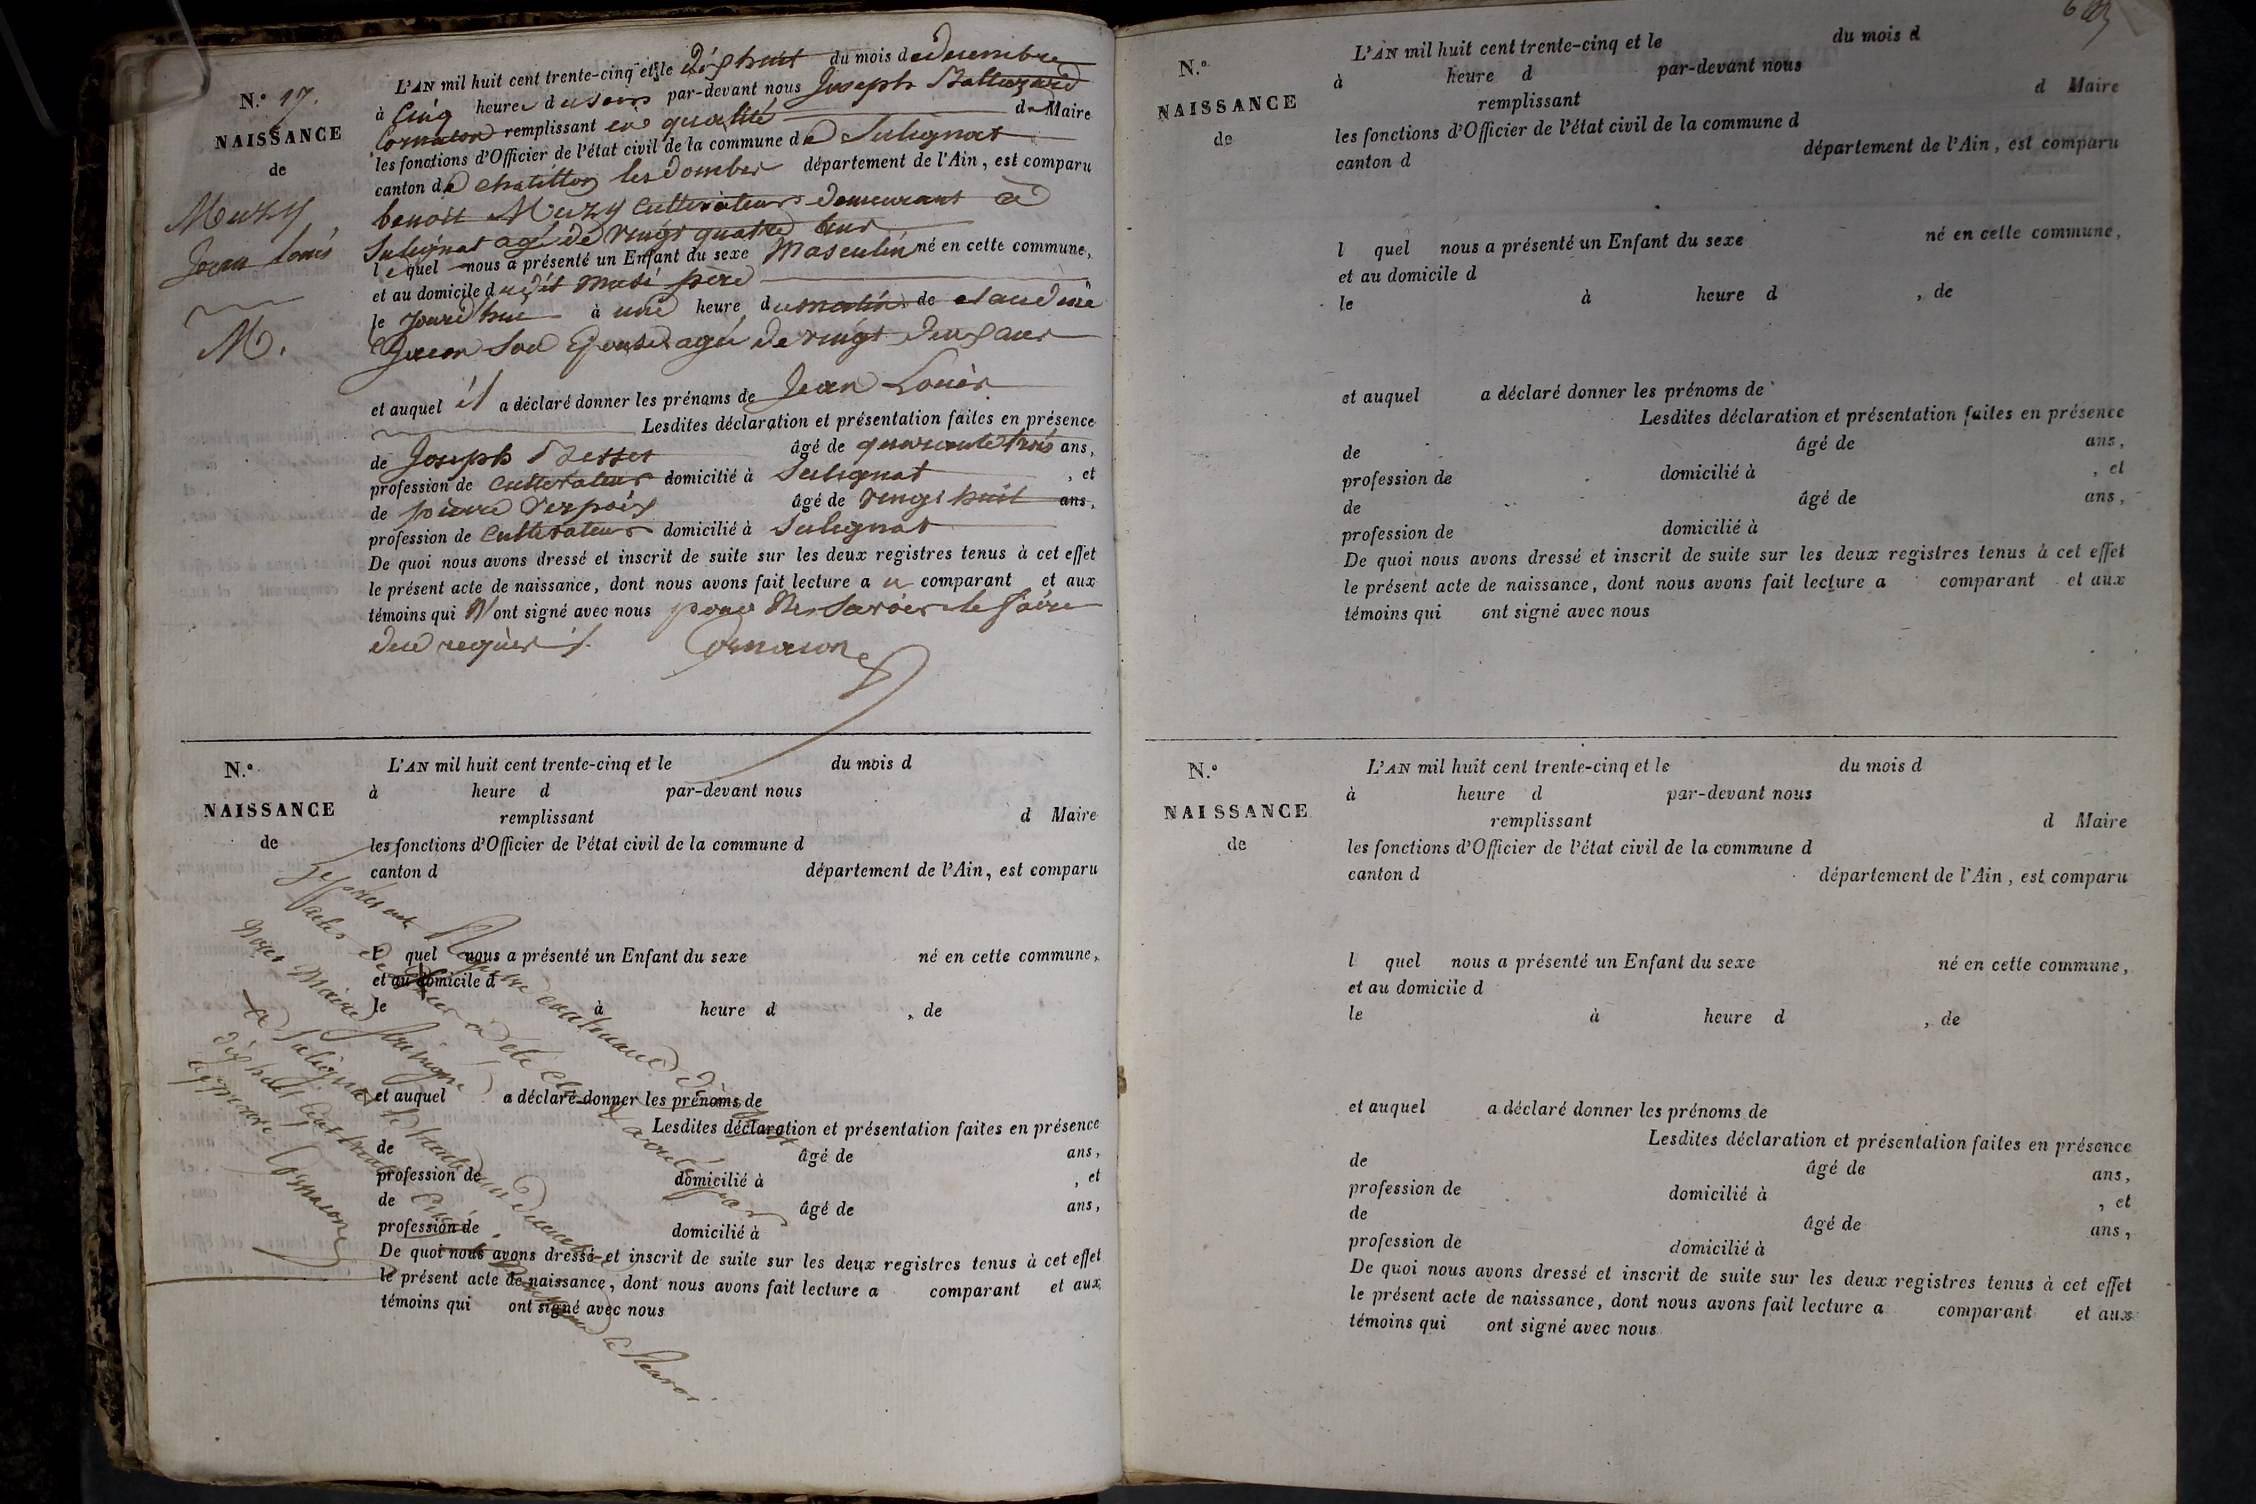 N.° 17.
NAISSANCE
de
Muzy
Jean Louis
M.
L'AN mil huit cent trente-cinq et le dixhuit du mois de decembre
à Cinq heure du soir par-devant nous Joseph Baltazard
Cormaton remplissant en qualité de Maire
les fonctions d'Officier de l'état civil de la commune de Sulignat
canton de chatillon les dombes département de l'Ain, est comparu
benoit Muzy cultivateur demeurant a
Sulignat agé de vingt quatre ans
lequel nous a présenté un Enfant du sexe Masculin né en cette commune,
et au domicile dudit père
le jourd'hui à une heure du matin de claudine
son Epouse agée de vingt deux ans
et auquel il a déclaré donner les prénoms de Jean Louis
Lesdites déclaration et présentation faites en présence
de Joseph âgé de quarante trois ans,
profession de cultivateur domicilié à Sulignat , et
de pierre âgé de vingt huit ans,
profession de Cultivateur domicilié à Sulignat
De quoi nous avons dressé et inscrit de suite sur les deux registres tenus à cet effet
le présent acte de naissance, dont nous avons fait lecture au comparant et aux
témoins qui N'ont signé avec nous pour ne savoir le faire
de ce requis
N.°
NAISSANCE
de
L'AN mil huit cent trente-cinq et le du mois d
à heure d par-devant nous
remplissant d Maire
les fonctions d'Officier de l'état civil de la commune d
canton d département de l'Ain, est comparu
l quel nous a présenté un Enfant du sexe né en cette commune,
et au domicile d
le à heure d , de
et auquel a déclaré donner les prénoms de
Lesdites déclaration et présentation faites en présence
de âgé de ans,
profession de domicilié à , et
de âgé de ans,
profession de domicilié à
De quoi nous avons dressé et inscrit de suite sur les deux registres tenus à cet effet
le présent acte de naissance, dont nous avons fait lecture a comparant et aux
témoins qui ont signé avec nous
Le présent Registre contenant
actes de a été clos et arrêté par
Nous Maire
a Sulignat le trente un decembre
dix huit cent trente cinq
N.°
NAISSANCE
de
L'AN mil huit cent trente-cinq et le du mois d
à heure d par-devant nous
remplissant d Maire
les fonctions d'Officier de l'état civil de la commune d
canton d département de l'Ain, est comparu
l quel nous a présenté un Enfant du sexe né en cette commune,
et au domicile d
le à heure d , de
et auquel a déclaré donner les prénoms de
Lesdites déclaration et présentation faites en présence
de âgé de ans,
profession de domicilié à , et
de âgé de ans,
profession de domicilié à
De quoi nous avons dressé et inscrit de suite sur les deux registres tenus à cet effet
le présent acte de naissance, dont nous avons fait lecture a comparant et aux
témoins qui ont signé avec nous
N.°
NAISSANCE
de
L'AN mil huit cent trente-cinq et le du mois d
à heure d par-devant nous
remplissant d Maire
les fonctions d'Officier de l'état civil de la commune d
canton d département de l'Ain, est comparu
l quel nous a présenté un Enfant du sexe né en cette commune,
et au domicile d
le à heure d , de
et auquel a déclaré donner les prénoms de
Lesdites déclaration et présentation faites en présence
de âgé de ans,
profession de domicilié à , et
de âgé de ans,
profession de domicilié à
De quoi nous avons dressé et inscrit de suite sur les deux registres tenus à cet effet
le présent acte de naissance, dont nous avons fait lecture a comparant et aux
témoins qui ont signé avec nous